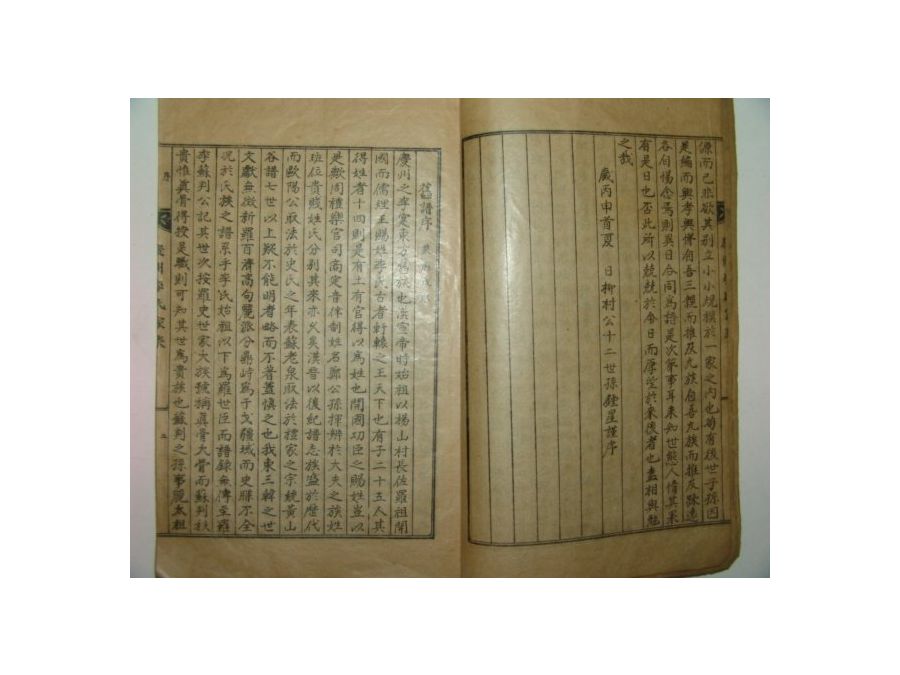 源而已非欲其別立小小規模於一家之內也苟有後世子孫因
是編而興孝興悌自吾三派推及九族自吾九族而推及踈遠
各自惕念焉則異日合同爲譜是次第事耳未知世態人情其果
有是日也否此所以兢兢於今日而厚望於來後者也盍相與勉
之哉
歲丙申首夏 日柳村公十二世孫鍾星謹序
舊譜序
慶州之李寔東方舊族也漢宣帝時始祖以楊山村長佐羅祖開
國而儒理王賜姓李氏古者軒轅之王天下也有子二十五人其
得姓者十四則是有土有官得以爲姓也開國功臣之賜姓豈以
是歟周禮樂官司商定音律制姓名鄭公孫揮辨於大夫之族姓
班位貴賤姓氏分別其來亦久矣漢晉以後紀譜志族盛於歷代
而歐陽公取法於史氏之年表蘇老泉取法於禮家之宗統黃山
谷譜七世以上疑不能明者略而不著蓋愼之也我東三韓之世
文獻無徵新羅百濟高句麗派分鼎峙爲干戈疆域而史牒不全
况於氏族之譜系乎李氏始祖以下爲羅世臣而譜錄無傳至羅
季蘇判公記其世次按羅史世家大族號稱眞骨大骨而蘇判秩
貴惟眞骨得授是職則可知其世爲貴族也蘇判之孫事麗太祖
序
慶州李氏家乘
二